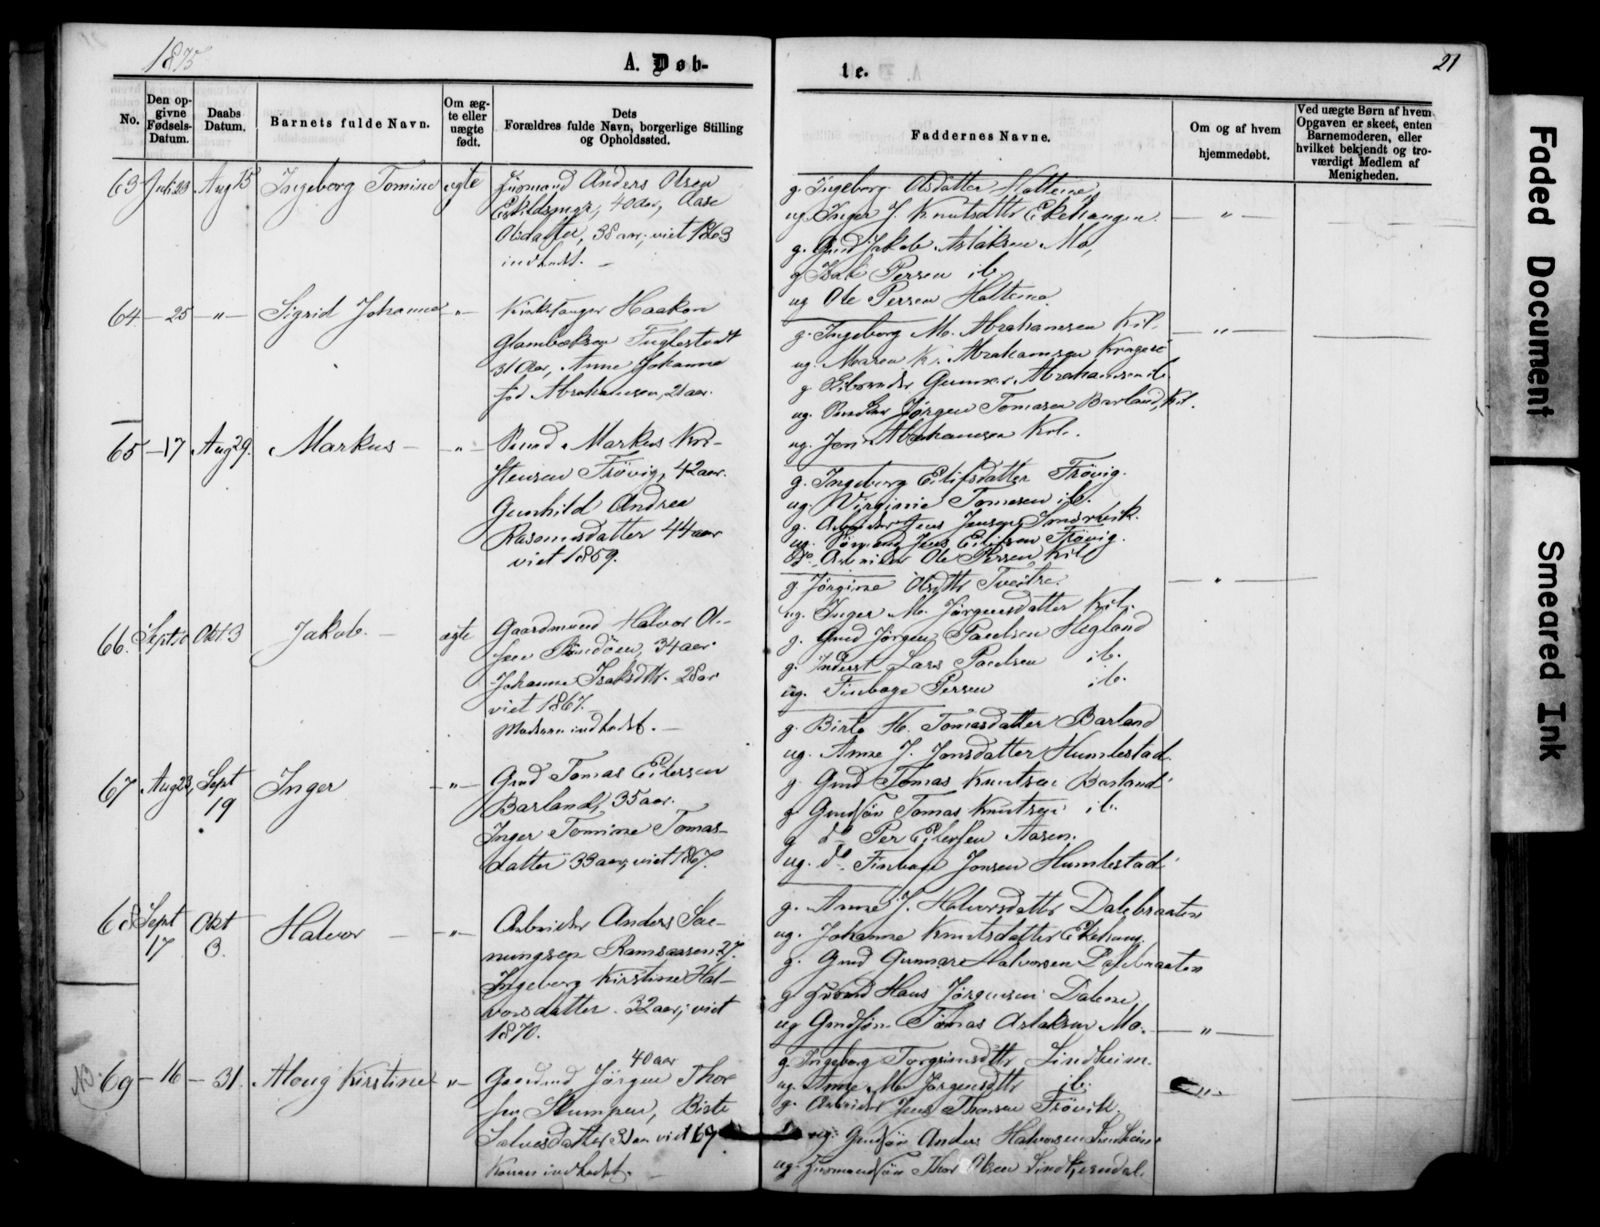 1875
A. Døb-
te.
21
No.
Den op-
givne
Fødsels-
Datum.
Daabs
Datum.
Barnets fulde Navn.
Om æg-
te eller
uægte
født.
Dets
Forældres fulde Navn, borgerlige Stilling
og Opholdssted.
Faddernes Navne.
Om og af hvem
hjemmedøbt.
Ved uægte Børn af hvem
Opgaven er skeet, enten
Barnemoderen, eller
hvilket bekjendt og tro-
værdigt Medlem af
Menigheden.
63 Juli 23 Aug 15 Ingeborg Tomine ægte
Husmand Anders Olsen
40 aar, Aase
Olsdatter, 38 aar, viet 1863
indkadt. —
g. Ingeborg Olsdatter Holteine,
ug. Inger J. Knutsdattr Ekehaugen.
g. Gmd Jakob Aslaksen Mo,
g Isak Persen ib.
ug Ole Persen Holteine.
64 — 25 — " — Sigrid Johanne — " —
Kirkesanger Haakon
Fuglestvedt
31 Aar, Anne Johanne
fød Abrahamsen, 21 aar.
g. Ingeborg M. Abrahamsen Kil.
ug. Maren K. Abrahamsen Kragerø
g. Gunner Abrahamsen ib.
ug. Jørgen Tomasen Barland, Kil.
ug. Jon Abrahamsen Kil.
65 — 17 Aug 29. Markus — — " —
Markus Kri-
stensen Frövig, 42 aar.
Gunhild Andrea
Rasmusdatter 44 aar
viet 1859.
g. Ingeborg Eilifsdatter Frövig.
ug. Virginie Tomesen ib.
g. Arbeider Jens Jensen
ug. Sømand Jens Eilifsen Frövig.
do. Arbeider Ole Persen Kil
66. Sept Okt 3 Jakob. — ægte
Gaardmand Halvor Ol-
sen 34 aar.
Johanne Isaksdtr. 28 aar
viet 1867.
Moderen indkadt. —
g Jørgine Olsdtr Tveitre.
ug. Inger M. Jørgensdatter Kil.
g. Gmd Jørgen Paulsen Hegland
g. Inderst Lars Paulsen ib.
ug. Finboge Persen ib.
67 Aug 23, Sept 19 Inger — " —
Gmd Tomas Eilersen
Barland, 35 aar.
Inger Tomine Tomas-
datter 33 aar, viet 1867.
g. Birte H. Tomasdatter Barland
ug. Anne J. Jonsdatter Humlestad
g. Gmd Tomas Knutsen Barland
g Gmdsøn Tomas Knutsen ib.
g do Per Eilersen Aasen.
ug. do. Finboge Jonsen Humlestad
68 Sept 17 Okt 3. Halvor — — " —
Arbeider Anders Sai-
nungsen Ramsaasen. 27.
Ingeborg Kirstine Hal-
vorsdatter. 32 aar, viet
1870.
g. Anne J. Halvorsdattr Dalebraaten
ug. Johanne Knutsdatter Ekehaug.
g. Gmd Gunnar Halvorsen Dalebraaten
g Husmd Hans Jørgensen Dalene,
ug Gmdsøn Tomas Aslaksen Mo. — " —
NB. 69 — 16 — 31. Aloug Kirstine — " —
40 aar
Gaardmd Jørgen Thor-
sen Stumpen, Birte
Salvesdatter 31 aar viet 69
Konen indkadt. —
g Ingeborg Torgrimsdtr Lindheim.
ug. Anne M. Jørgensdtr ib.
g. Arbeider Jens Thorsen Frövik.
ug. Gmdsøn Anders Halvorsen Lindheim
ug. Husmandsøn Thor Olsen
Faded Document
Smeared Ink